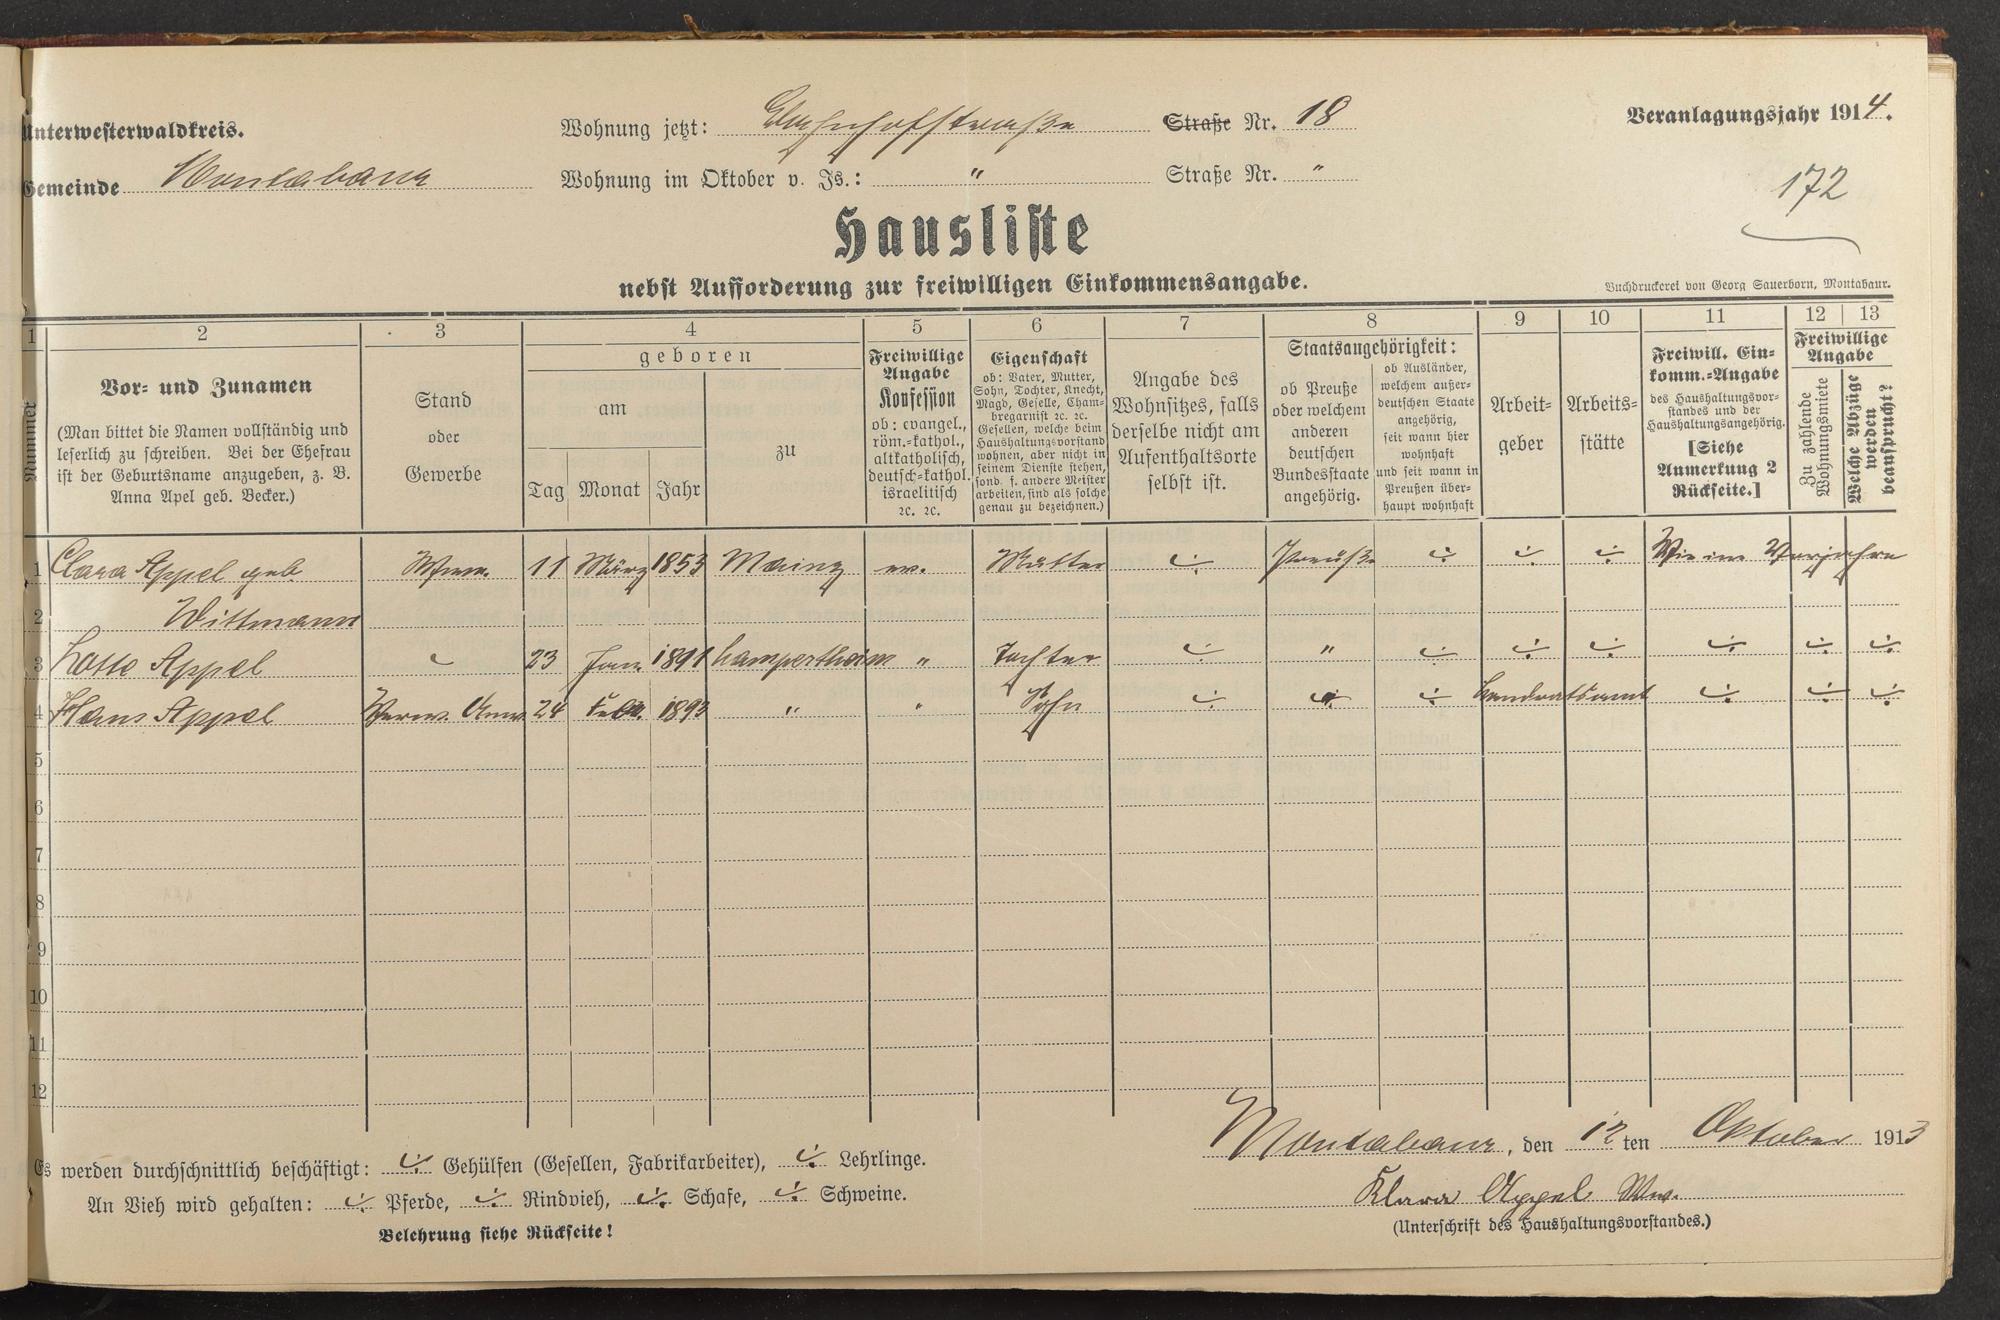 Unterwesterwaldkreis.
Gemeinde Montabaur
Wohnung jetzt: Bahnhofstraße Straße Nr. 18
Wohnung im Oktober v. Js.: " Straße Nr. "
Veranlagungsjahr 1914.
172
Hausliste
nebst Aufforderung zur freiwilligen Einkommensangabe.
Buchdruckerei von Georg Sauerborn, Montabaur.
1 2 3 4 5 6 7 8 9 10 11 12 13
Nummer
Vor- und Zunamen
(Man bittet die Namen vollständig und
leserlich zu schreiben. Bei der Ehefrau
ist der Geburtsname anzugeben, z. B.
Anna Apel geb. Becker.)
Stand
oder
Gewerbe
geboren
am
Tag Monat Jahr
zu
Freiwillige
Angabe
Konfession
ob: evangel.,
röm.-kathol.,
altkatholisch,
deutsch-kathol.
israelitisch
ꝛc. ꝛc.
Eigenschaft
ob: Vater, Mutter,
Sohn, Tochter, Knecht,
Magd, Geselle, Cham-
bregarnist ꝛc. ꝛc.
Gesellen, welche beim
Haushaltungsvorstand
wohnen, aber nicht in
seinem Dienste stehen,
sond. f. andere Meister
arbeiten, sind als solche
genau zu bezeichnen.)
Angabe des
Wohnsitzes, falls
derselbe nicht am
Aufenthaltsorte
selbst ist.
Staatsangehörigkeit:
ob Preuße
oder welchem
anderen
deutschen
Bundesstaate
angehörig.
ob Ausländer,
welchem außer-
deutschen Staate
angehörig,
seit wann hier
wohnhaft
und seit wann in
Preußen über-
haupt wohnhaft
Arbeit-
geber
Arbeits-
stätte
Freiwill. Ein-
komm.-Angabe
des Haushaltungsvor-
standes und der
Haushaltungsangehörig.
[Siehe
Anmerkung 2
Rückseite.]
Freiwillige
Angabe
Zu zahlende
Wohnungsmiete
Welche Abzüge
werden
beansprucht?
1 Clara Appel geb Wwe. 11 März 1853 Mainz ev. Mutter Preuße Wie im Vorjahre
2 Wittmann
3 Lotte Appel 23 Jan. 1891 Lampertheim " Tochter "
4 Hans Appel Verw. Anw. 24 Febr. 1893 " " Sohn " Landratsamt
5
6
7
8
9
10
11
12
Es werden durchschnittlich beschäftigt: Gehülfen (Gesellen, Fabrikarbeiter), Lehrlinge.
An Vieh wird gehalten: Pferde, Rindvieh, Schafe, Schweine.
Belehrung siehe Rückseite!
Montabaur, den 12ten Oktober 1913
Klara Appel Ww.
(Unterschrift des Haushaltungsvorstandes.)